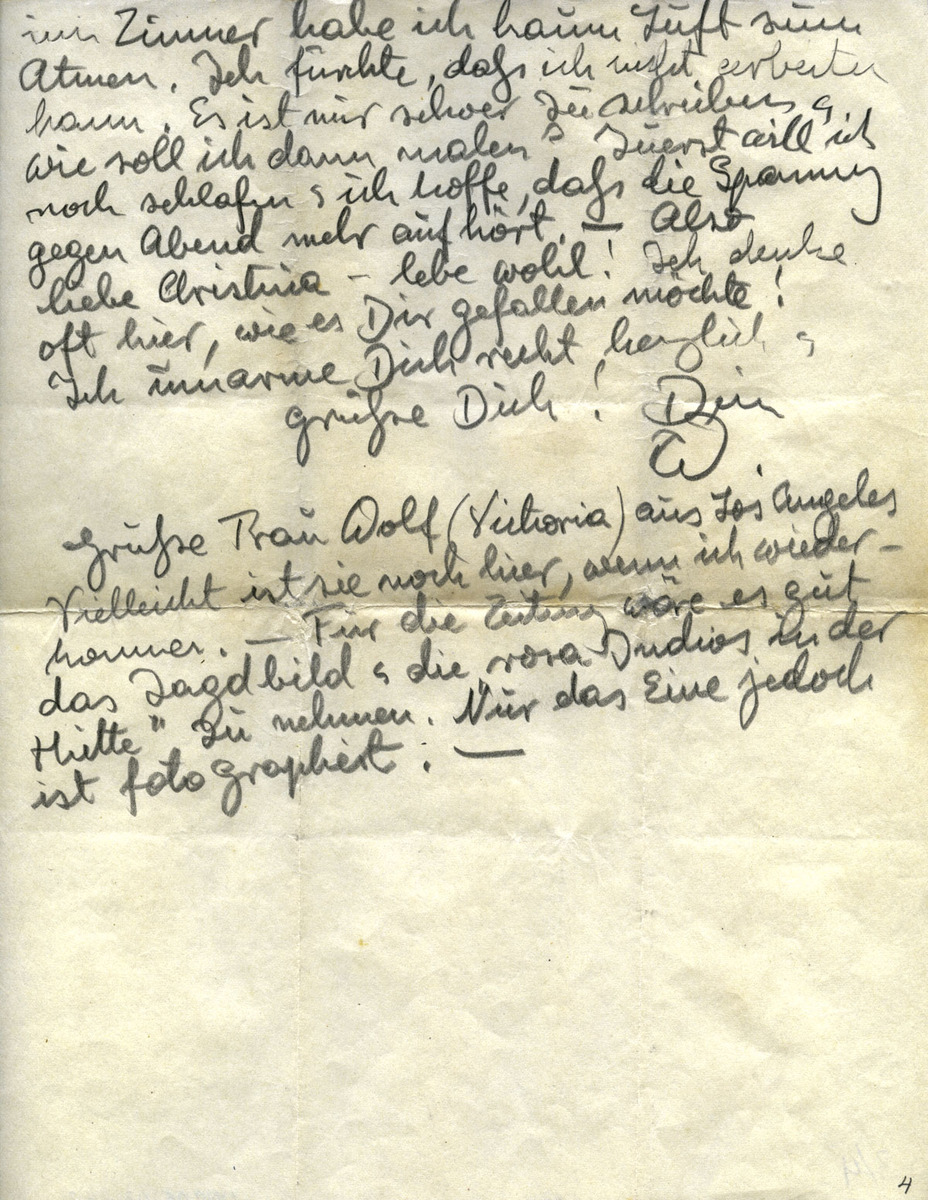 im Zimmer habe ich kaum Luft zum
Atmen. Ich fürchte, dass ich nicht arbeiten
kann. Es ist mir schwer zu schreiben &
wie soll ich dann malen? Zuerst will ich
noch schlafen & ich hoffe, dass die Spannung
gegen Abend mehr aufhört. — Also
liebe Christina – lebe wohl! Ich denke
oft hier, wie es Dir gefallen möchte!
Ich umarme Dich recht herzlich &
grüße Dich! Dein
W
Grüße Frau Wolf (Victoria) aus Los Angeles
Vielleicht ist sie noch hier, wenn ich wieder-
komme. — Für die Zeitung wäre es gut
das Jagdbild & die "rosa Indios in der
Hütte" zu nehmen. Nur das Eine jedoch
ist fotographiert. —
4